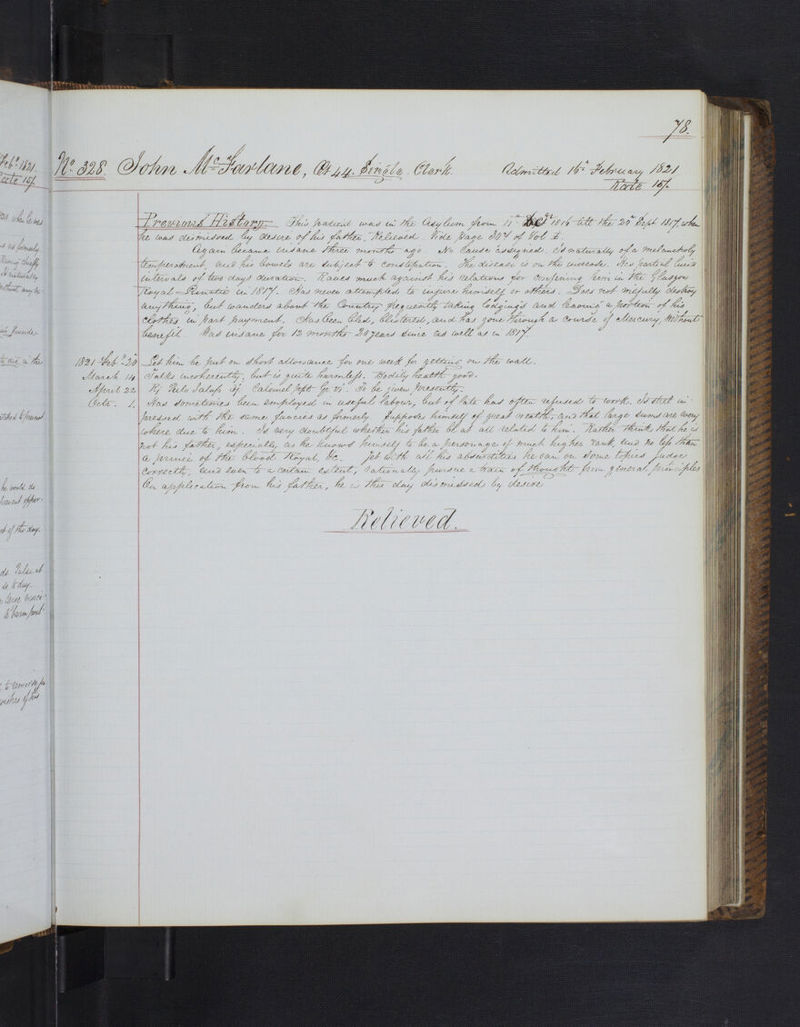 78.
Feby. 1821
Rate 15/.
No. 328. John McFarlane, Æt 44. Single. Clerk. Admitted 16th February 1821
Rate 15/.
Previous History. This patient was in the Asylum from 11th Decr. 1816 till the 20th Septr 1817, when
he was dismissed by desire of his father, Relieved. Vide page 307 of Vol 1.
Again became insane three months ago. No Cause assigned. Is naturally of a melancholy
temperament, and his bowels are subject to constipation. The disease is on the increase. Has partial lucid
intervals of two days duration. Raves much against his relations for confining him in the Glasgow
Royal Lunatic in 1817. Has never attempted to injure himself or others. Does not wilfully destroy
anything, but wanders about the Country frequently taking lodgings and leaving a portion of his
clothes in part payment. Has been Bled, Blistered, and has gone through a course of Mercury, without
benefit. Was insane for 12 months 20 years since as well as in 1817.
1821 Feby. 20 Let him be put on short allowance for one week for getting on the wall.
March 14 Talks incoherently, but is quite harmless. Bodily health good.
April 22 Calomel To be given presently.
Octr. 1. Has sometimes been employed in useful labour, but of late has often refused to work. Is still im-
pressed with the same fancies as formerly. Supposes himself of great wealth, and that large sums are every
where due to him. Is very doubtful whether his father be at all related to him. Rather thinks that he is
not his father, especially as he knows himself to be a personage of much higher rank, and no less than
a prince of the blood Royal, &c. Yet with all his absurdities he can on some topics judge
correctly, and even to a certain extent, rationally pursue a train of thought from general principles
On application from his father, he is this day dismissed by desire
Relieved.